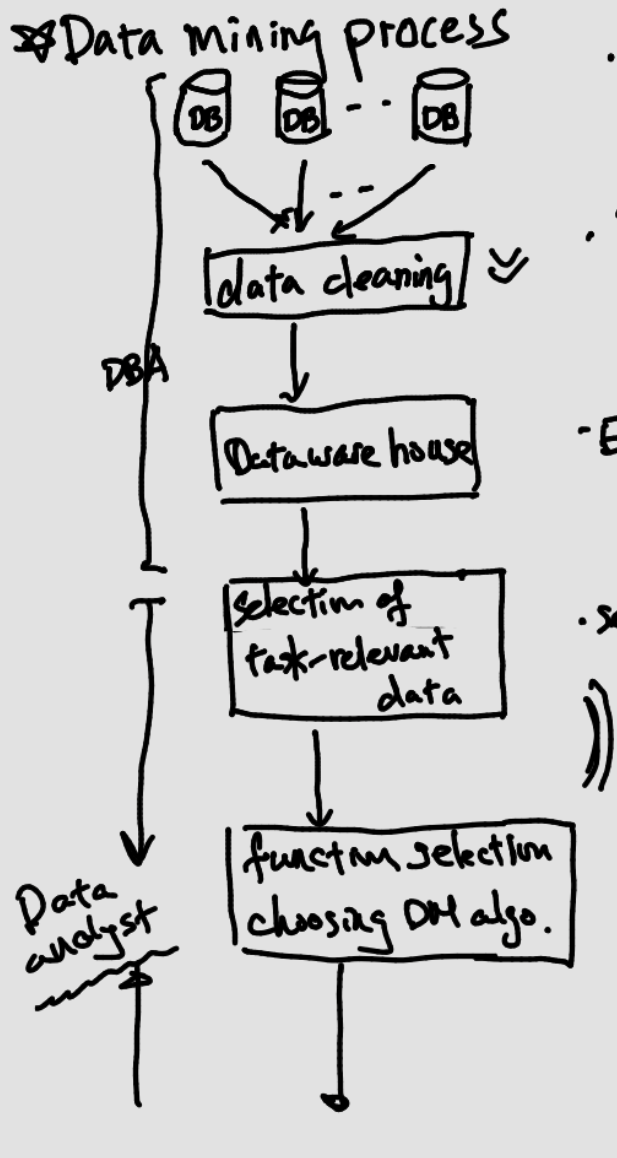 ☆Data mining process
DB DB -- DB
--
data cleaning
DBA
Dataware house
Selection of
task-relevant
data
function selection
choosing DM algo.
Data
analyst
- E
. se